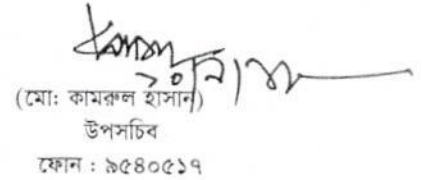 (মো: কামরুল হাসান)
উপসচিব
ফোন : ৯৫৪০৫১৭